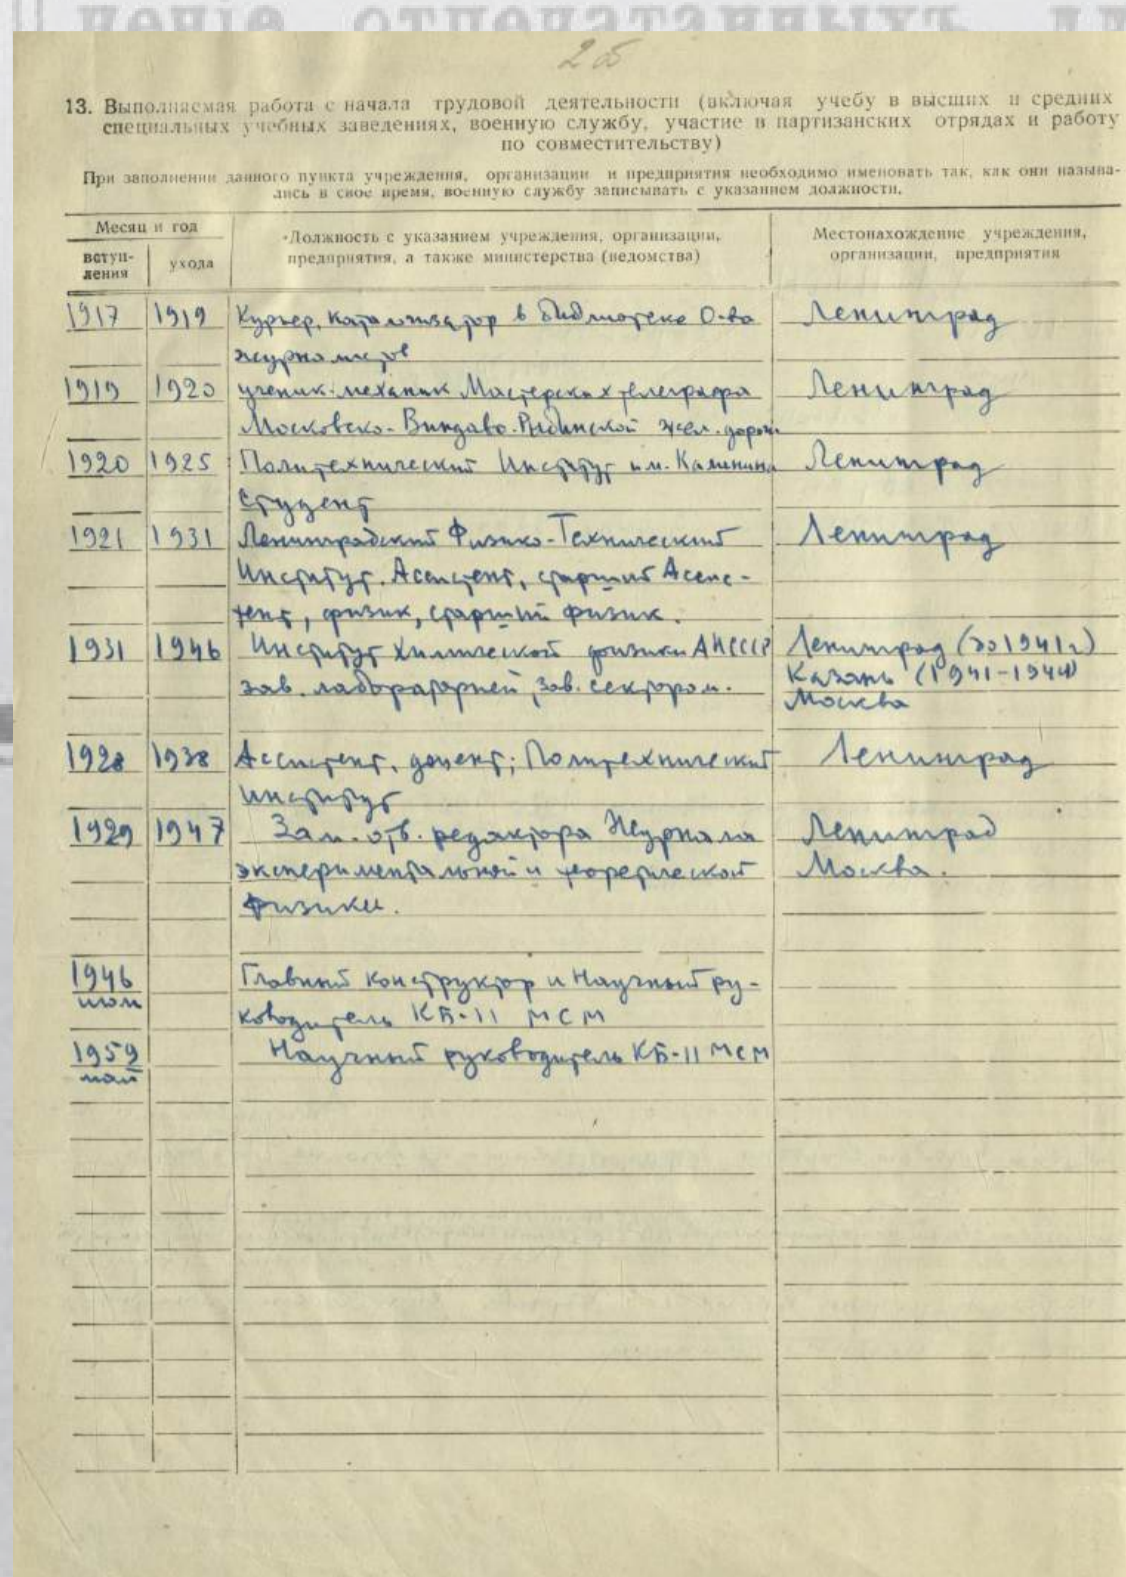 ченіе отпечатанныхъ дл
2б
13. Выполняемая работа с начала трудовой деятельности (включая учебу в высших и средних
специальных учебных заведениях, военную службу, участие в партизанских отрядах и работу
по совместительству)
При заполнении данного пункта учреждения, организации и предприятия необходимо именовать так, как они называ-
лись в свое время, военную службу записывать с указанием должности.
Месяц и год
вступ-
ления
ухода
Должность с указанием учреждения, организации,
предприятия, а также министерства (ведомства)
Местонахождение учреждения,
организации, предприятия
1917 1919 Курьер, каталогизатор в библиотеке О-ва Ленинград
журналистов
1919 1920 ученик-механик Мастерских телеграфа Ленинград
Московско-Виндаво-Рыбинской жел. дороги
1920 1925 Политехнический Институт им. Калинина Ленинград
студент
1921 1931 Ленинградский Физико-Технический Ленинград
Институт. Ассистент, старший Ассис-
тент, физик, старший физик.
1931 1946 Институт Химической физики АН СССР Ленинград (до 1941 г)
зав. лабораторией, зав. сектором. Казань (1941-1944)
Москва
1928 1938 Ассистент, доцент; Политехнический Ленинград
институт
1929 1947 Зам. отв. редактора Журнала Ленинград
экспериментальной и теоретической Москва.
физики.
1946 Главный конструктор и Научный ру-
ководитель КБ-11 МСМ
1959 Научный руководитель КБ-11 МСМ
май